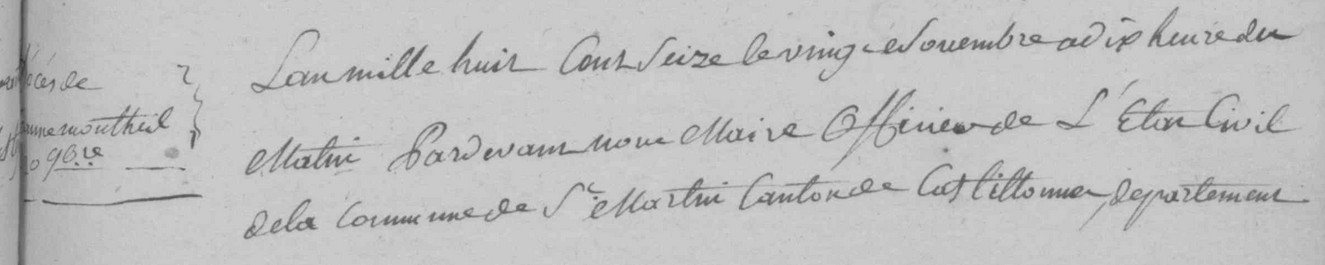 décés de
jeanne montheil
20 9bre
Lan mille huit Cent Seize le ving Novembre a dix heure du
Matin Pardevant nous Maire Officier de L'Etat Civil
dela Commune de St Martin Canton de Castillonnes, departement